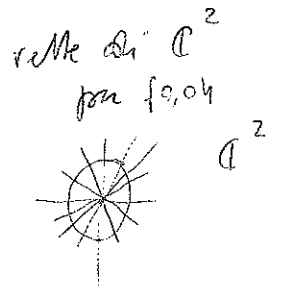 rette di ℂ²
per {0,0}
ℂ²